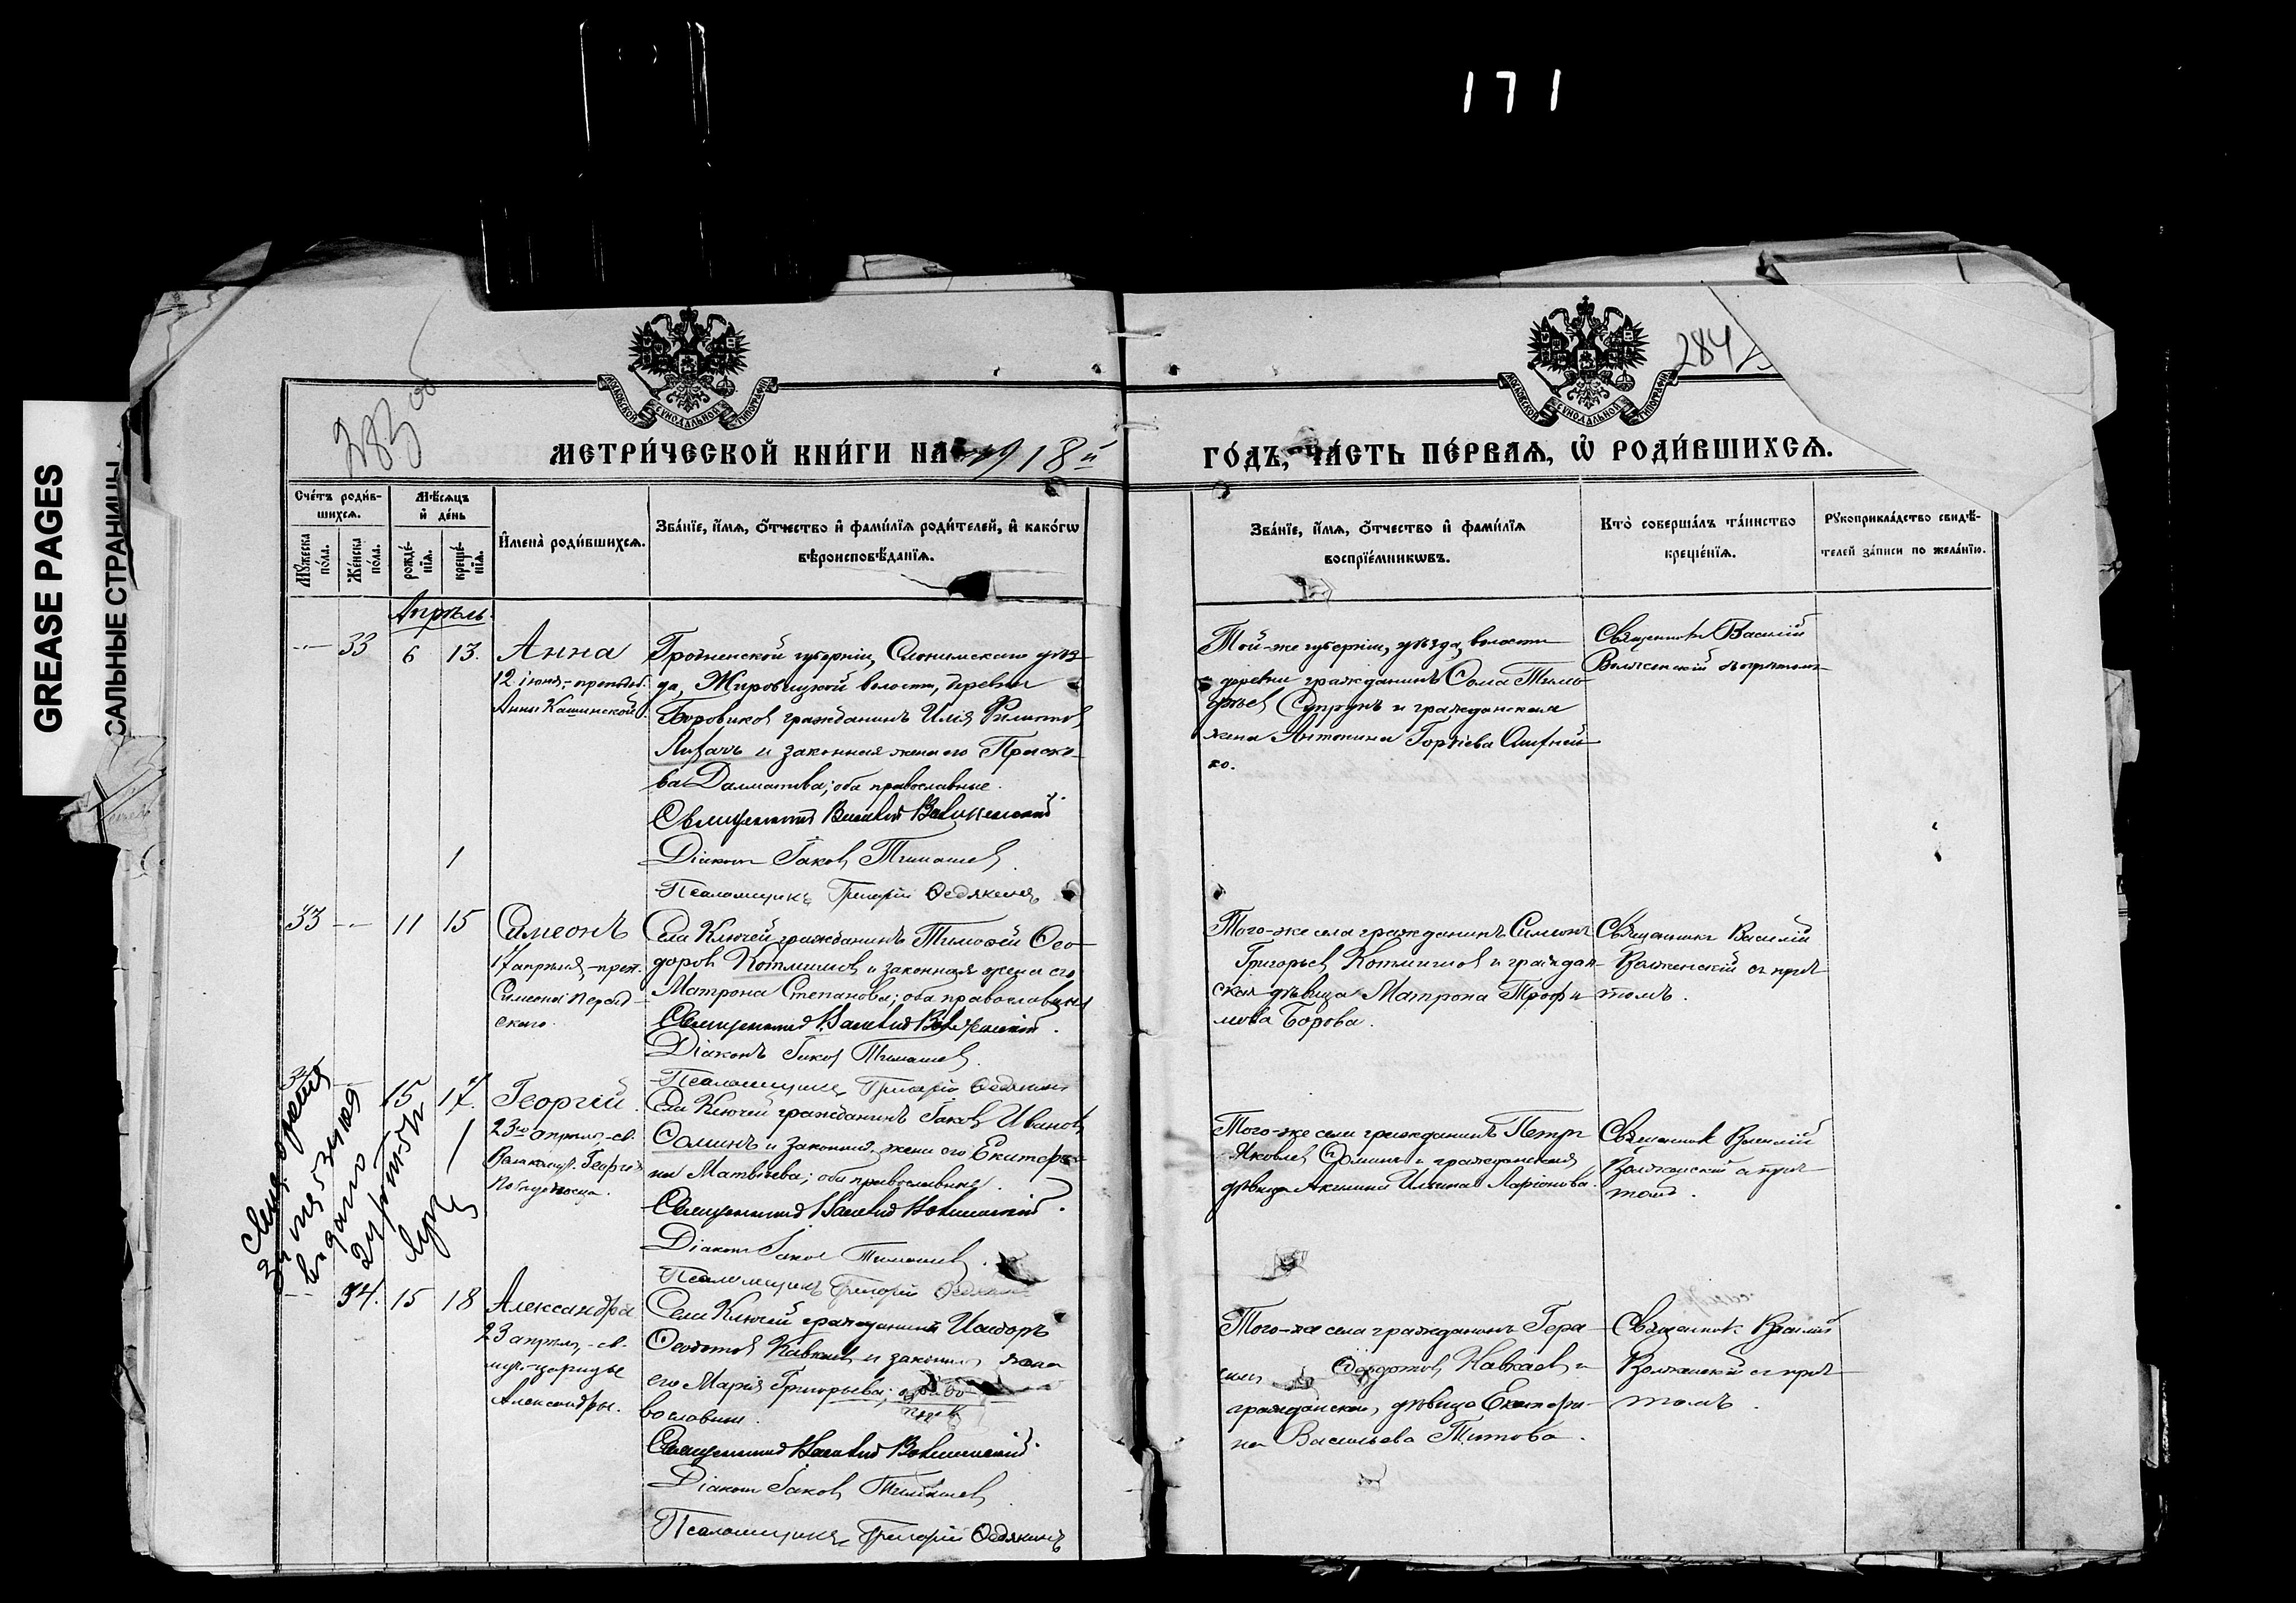 171
GREASE PAGES
САЛЬНЫЕ СТРАНИЦЫ
283 об
284
МОСКОВСКОЙ СѴНОДАЛЬНОЙ ТИПОГРАФІИ
МОСКОВСКОЙ СѴНОДАЛЬНОЙ ТИПОГРАФІИ
МЕТРИ́ЧЕСКОЙ КНИ́ГИ НА 1918й
ГО́ДЪ, ЧА́СТЬ ПЕ́РВАѦ, Ѡ҆ РОДИ́ВШИХСѦ.
Сче́тъ роди́в-
шихсѧ.
Мꙋ́жеска по́ла.
Же́нска по́ла.
Мѣ́сѧцъ и҆ де́нь
рожде́-нїѧ.
креще́-нїѧ.
И҆мена̀ роди́вшихсѧ.
Зва́нїе, и҆́мѧ, ѻ҆́тчество и҆ фами́лїѧ роди́телей, и҆ како́гѡ
вѣроисповѣ́данїѧ.
Зва́нїе, и҆́мѧ, ѻ҆́тчество и҆ фами́лїѧ
воспрїе́мникѡвъ.
Кто̀ соверша́лъ та́инство
креще́нїѧ.
Рꙋкоприкла́дство свидѣ́-
телей за́писи по жела́нїю.
Апрѣль.
33 6 13. Анна
12 іюня, преподоб.
Анны Кашинской.
Гродненской губерніи, Слонимскаго уѣз-
да, Жировицкой волости, деревни
Боровиков гражданинъ Илія Филиппов
и законная жена его Праско-
ва Далматова; оба православные.
Священникъ Василій Волженскій.
Діаконъ Іаков Тимашев.
Псаломщикъ Григорій Ѳедякинъ
Той-же губерніи, уѣзда, волости
деревни гражданинъ Ѳома Тимо-
фѣев Супрунъ и гражданская
жена Антонина
ко.
Священникъ Василій
Волженскій съ причтомъ
1
33 11 15 Симеонъ
17 апрѣля, преп.
Симеона Персид-
скаго.
Села Ключей гражданинъ Тимоѳей Ѳео-
доров Котмишов и законная жена его
Матрона Степанова; оба православные
Священникъ Василій Волженскій.
Діаконъ Іаков Тимашев.
Псаломщикъ Григорій Ѳедякинъ
Того-же села гражданинъ Симеонъ
Григорьев Котмишов и граждан-
ская дѣвица Матрона Трофи-
мова Борова.
Священникъ Василій
Волженскій съ прич-
томъ.
34 15 17. Георгій.
23го апрѣля, св.
Великомуч. Георгія
Побѣдоносца.
Села Ключей гражданинъ Іаков Иванов
Ѳоминъ и законная жена его Екатери-
на Матвѣева; оба православные.
Священникъ Василій Волженскій.
Діаконъ Іаков Тимашев.
Псаломщикъ Григорій Ѳедякинъ
Того-же села гражданинъ Петръ
Яковлев Ѳоминъ и гражданская
дѣвица Акилина Ильина Ларіонова.
Священникъ Василій
Волженскій съ прич-
томъ.
за №
выдано
34. 15 18 Александра
23 апрѣля, св.
муч. царицы
Александры.
Села Ключей гражданинъ Исидоръ
Ѳеодотов Кавкаев и законная жена
его Марія Григорьева; оба
вославные.
Священникъ Василій Волженскій.
Діаконъ Іаков Тимашев
Псаломщикъ Григорій Ѳедякинъ
Того-же села гражданинъ Гера-
сим Ѳеодотов Кавкаев и
гражданская дѣвица Екатери-
на Васильева Титова.
Священникъ Василій
Волженскій съ прич-
томъ.